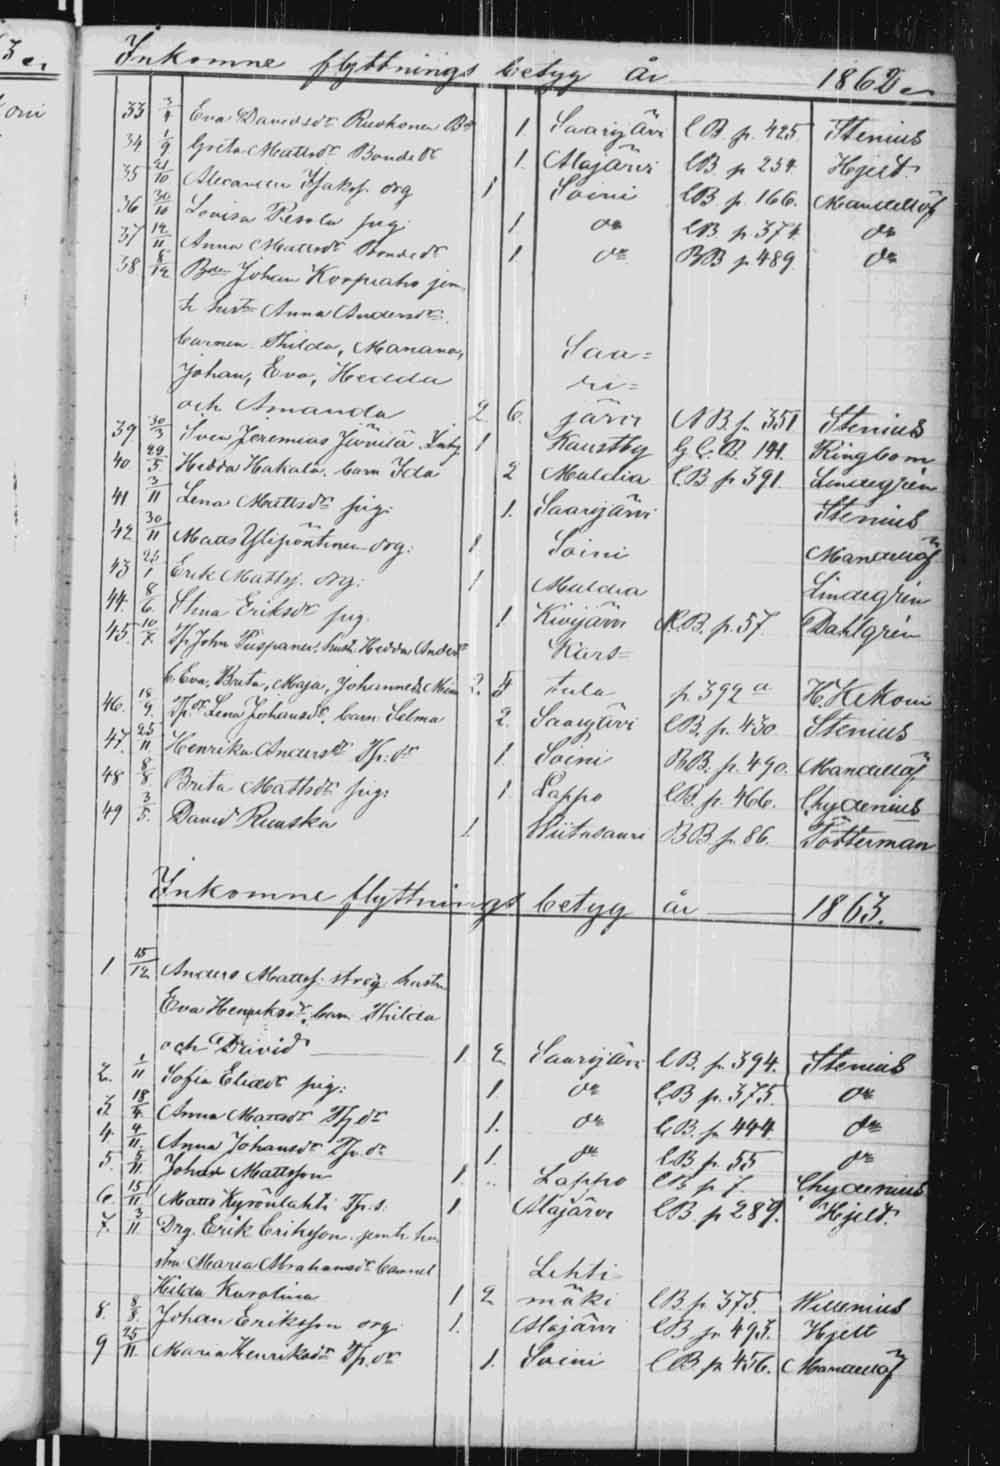 Inkomne flyttnings betyg år 1862
33 3/4 Eva Davidsdr Ruokonen 1. Saarijärvi CB. p. 425. Stenius
34 1/9 Greta Mattsdr Bondedr 1. Alajärvi CB p 254. Hjelt
35 21/10 Alexander Isaksf. drg 1 Soini CB p. 166. Mandellöf
36 30/10 Lovisa Pesola pig. 1. do CB. p. 374 do
37 12/11 Anna Mattsdr Bondedr 1. do BB p. 489. do
38 8/12 Johan Korpiaho jem
te hust Anna Andersdr.
barnen Thilda, Mariana, Saa=
Johan, Eva, Hedda ri=
och Amanda 2. 6. järvi p. 351 Stenius
39 30/3 Sven Jeremias Järvilä 1 Kaustby 141. Ringbom
40. 29/5 Hedda Hakala. barn Ida 2 Multia CB p 391. Lindegrén
41 3/11 Lena Mattsdr pig. 1. Saarijärvi Stenius
42 30/11 Matts Ylipöntinen drg: 1 Soini Mandellöf
43 25/1 Erik Mattsf. drg: 1 Multia Lindegrén
44. 8/6. Stina Eriksdr pig. 1 Kivijärvi p. 57. Dahlgrén
45. 10/7. John hust: Hedda Anders Kars=
b. Eva, Brita, Maja, Johannes & 2. tula p. 392 a H. Kekoni
46. 18/9 Lena Johansdr, barn Selma 2. Saarijärvi CB. p. 430. Stenius
47. 25/11 Henrika Andersdr Tp. dr 1. Soini BB. p. 490. Mandellöf
48 8/8 Brita Mattsdr pig: 1. Lappo CB. p. 466. Chydenius
49 3/5. David Ruuska 1 Wiitasaari BB p. 86. Tötterman
Inkomne flyttnings betyg år 1863.
1. 15/12 Anders Mattsf. hustru
Eva Henriksdr, barn Thilda
och David 1. 2. Saarijärvi CB. p. 394. Stenius
2. 1/11 Sofia Eliaedr pig: 1. do CB p. 375. do
3. 18/4. Anna Mattsdr Tp dr 1. do CB. p. 444. do
4. 4/11. Anna Johansdr Tp. dr 1. do CB p. 55 do
5. 5/11. Johan Mattsson 1. Lappo CB p 7. Chydenius
6. 15/11 Matts Kyrönlahti Tp. s. 1 Alajärvi CB. p 289. Hjelt.
7. 3/11 Drg. Erik Eriksson jemte hu
stru Maria Abrahamsdr barnet Lehti
Hilda Karolina 1 2 mäki CB. p. 375. Willenius
8. 8/8. Johan Eriksson drg. 1. Alajärvi CB p. 493. Hjelt
9 25/11. Maria Henriksdr Tp. dr 1. Soini CB. p. 456. Mandellöf